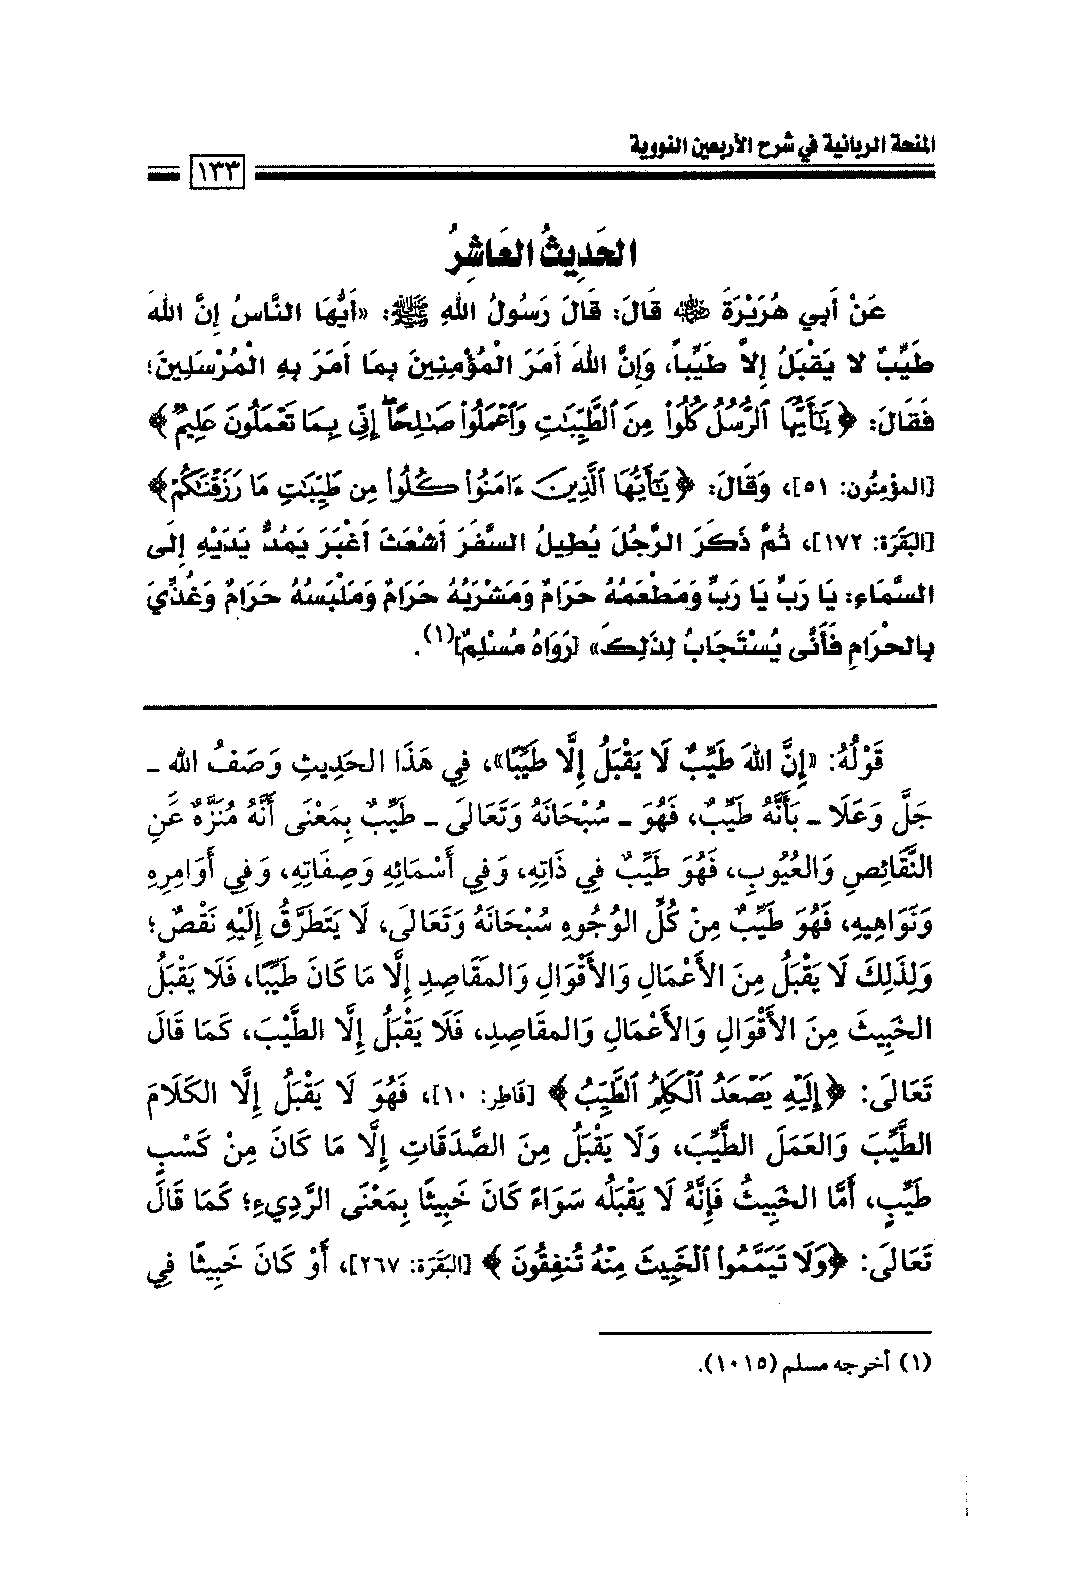 المنحة الربانية في شرح الأربعين النووية
١٣٣
الحَدِيثُ العَاشِرُ
عَنْ أَبِي هُرَيْرَةَ ﵁ قَالَ: قَالَ رَسُولُ اللهِ ﷺ: «أَيُّهَا النَّاسُ إِنَّ اللهَ
طَيِّبٌ لا يَقْبَلُ إِلاَّ طَيِّباً، وَإِنَّ اللهَ أَمَرَ الْمُؤْمِنِينَ بِمَا أَمَرَ بِهِ الْمُرْسَلِينَ؛
فَقَالَ: ﴿يَٰٓأَيُّهَا ٱلرُّسُلُ كُلُوا۟ مِنَ ٱلطَّيِّبَٰتِ وَٱعْمَلُوا۟ صَٰلِحًا ۖ إِنِّى بِمَا تَعْمَلُونَ عَلِيمٌ﴾
[المؤمِنُون: ٥١]، وَقَالَ: ﴿يَٰٓأَيُّهَا ٱلَّذِينَ ءَامَنُوا۟ كُلُوا۟ مِن طَيِّبَٰتِ مَا رَزَقْنَٰكُمْ﴾
[البَقَرَة: ١٧٢]، ثُمَّ ذَكَرَ الرَّجُلَ يُطِيلُ السَّفَرَ أَشْعَثَ أَغْبَرَ يَمُدُّ يَدَيْهِ إِلَى
السَّمَاءِ: يَا رَبِّ يَا رَبِّ وَمَطْعَمُهُ حَرَامٌ وَمَشْرَبُهُ حَرَامٌ وَمَلْبَسُهُ حَرَامٌ وَغُذِّيَ
بِالحَرَامِ فَأَنَّى يُسْتَجَابُ لِذَلِكَ» [رَوَاهُ مُسْلِمٌ](١).
قَوْلُهُ: «إِنَّ اللهَ طَيِّبٌ لَا يَقْبَلُ إِلَّا طَيِّبًا»، فِي هَذَا الحَدِيثِ وَصَفُ الله ـ
جَلَّ وَعَلَا ـ بَأَنَّهُ طَيِّبٌ، فَهُوَ ـ سُبْحَانَهُ وَتَعَالَى ـ طَيِّبٌ بِمَعْنَى أَنَّهُ مُنَزَّهٌ عَنِ
النَّقَائِصِ وَالعُيُوبِ، فَهُوَ طَيِّبٌ فِي ذَاتِهِ، وَفِي أَسْمَائِهِ وَصِفَاتِهِ، وَفِي أَوَامِرِهِ
وَنَوَاهِيهِ، فَهُوَ طَيِّبٌ مِنْ كُلِّ الوُجُوهِ سُبْحَانَهُ وَتَعَالَى، لَا يَتَطَرَّقُ إِلَيْهِ نَقْصٌ؛
وَلِذَلِكَ لَا يَقْبَلُ مِنَ الأَعْمَالِ وَالأَقْوَالِ وَالمَقَاصِدِ إِلَّا مَا كَانَ طَيِّبًا، فَلَا يَقْبَلُ
الخَبِيثَ مِنَ الأَقْوَالِ وَالأَعْمَالِ وَالمقَاصِدِ، فَلَا يَقْبَلُ إِلَّا الطَّيِّبَ، كَمَا قَالَ
تَعَالَى: ﴿إِلَيْهِ يَصْعَدُ ٱلْكَلِمُ ٱلطَّيِّبُ﴾ [فَاطِر: ١٠]، فَهُوَ لَا يَقْبَلُ إِلَّا الكَلَامَ
الطَّيِّبَ وَالعَمَلَ الطَّيِّبَ، وَلَا يَقْبَلُ مِنَ الصَّدَقَاتِ إِلَّا مَا كَانَ مِنْ كَسْبٍ
طَيِّبٍ، أَمَّا الخَبِيثُ فَإِنَّهُ لَا يَقْبَلُه سَوَاءً كَانَ خَبِيثًا بِمَعْنَى الرَّدِيءِ؛ كَمَا قَالَ
تَعَالَى: ﴿وَلَا تَيَمَّمُوا۟ ٱلْخَبِيثَ مِنْهُ تُنفِقُونَ﴾ [البَقَرَة: ٢٦٧]، أَوْ كَانَ خَبِيثًا فِي
(١) أخرجه مسلم (١٠١٥).